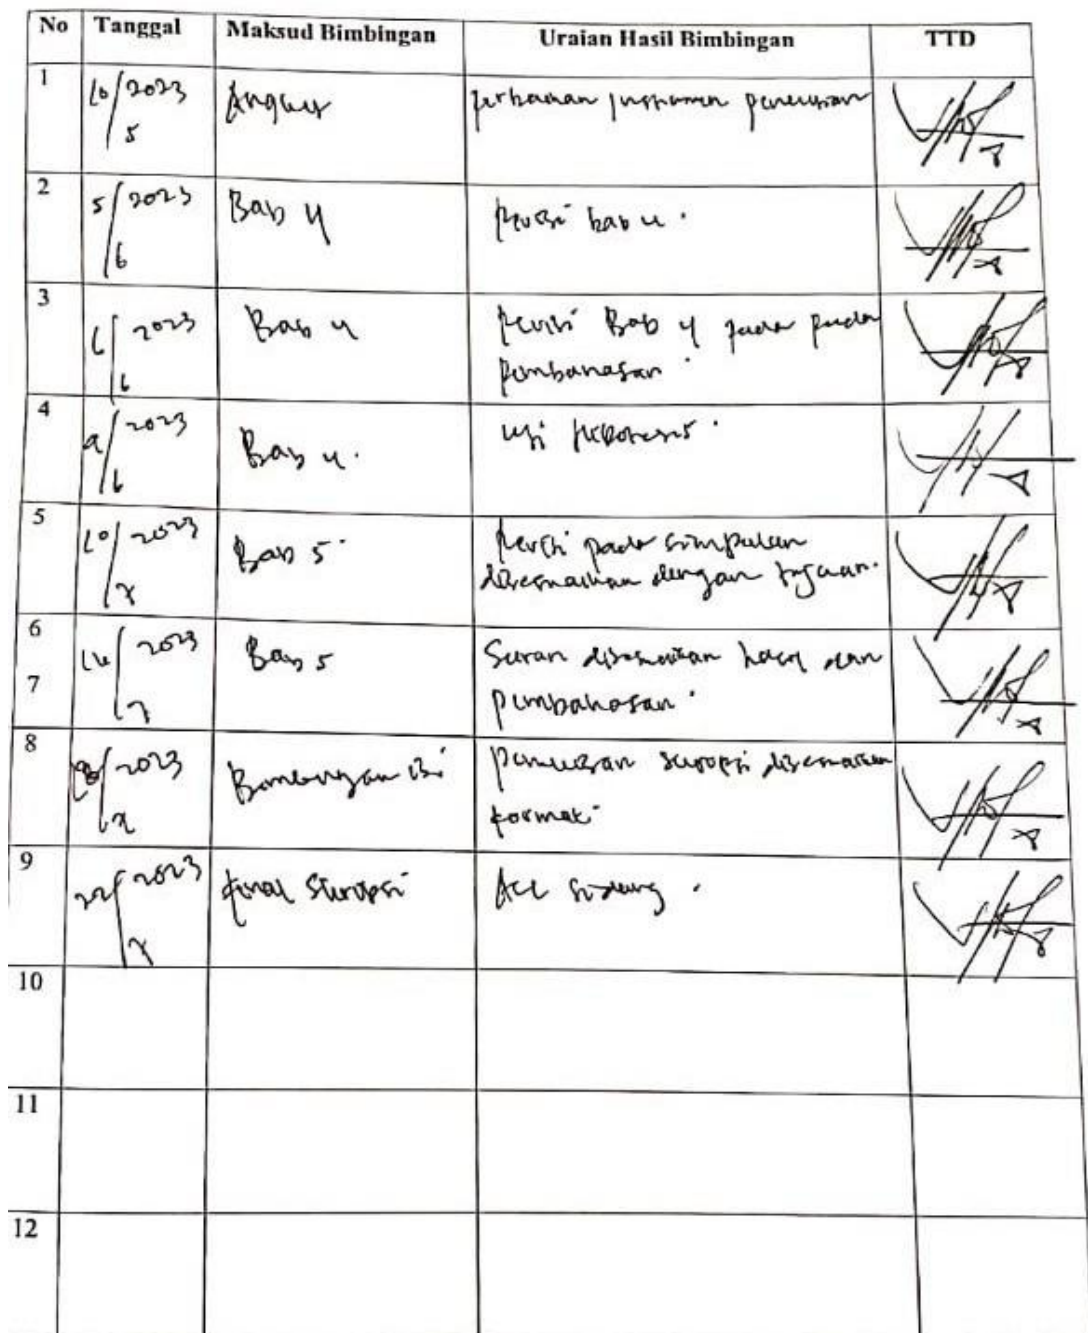 No Tanggal Maksud Bimbingan Uraian Hasil Bimbingan TTD
1 10/2023 Angket perbaikan instrumen penelitian
5
2 5/2023 Bab 4 Revisi bab 4.
6
3 6/2023 Bab 4 Revisi Bab 4 pada
6 pembahasan
4 9/2023 Bab 4. uji hipotesis.
6
5 10/2023 Bab 5 Revisi pada simpulan
7 disesuaikan dengan tujuan.
6 14/2023 Bab 5 Saran disesuaikan hasil dan
7 7 pembahasan.
8 2023 Bimbingan isi penulisan skripsi disesuaikan
7 format
9 22/2023 final skripsi Acc sidang.
7
10
11
12